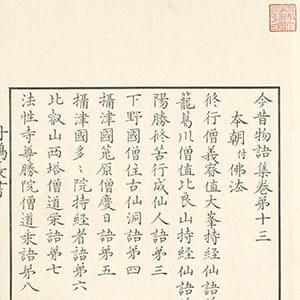 今昔物語集卷第十三
本朝付佛法
修行僧義睿值大峯持經仙語
籠葛川僧值比良山持經仙語
陽勝修苦行成仙人語第三
下野國僧住古仙洞語第四
攝津國菟原僧慶日語第五
攝津國多々院持經者語第六
比叡山西塔僧道榮語第七
法性寺尊勝院僧道乘語第八